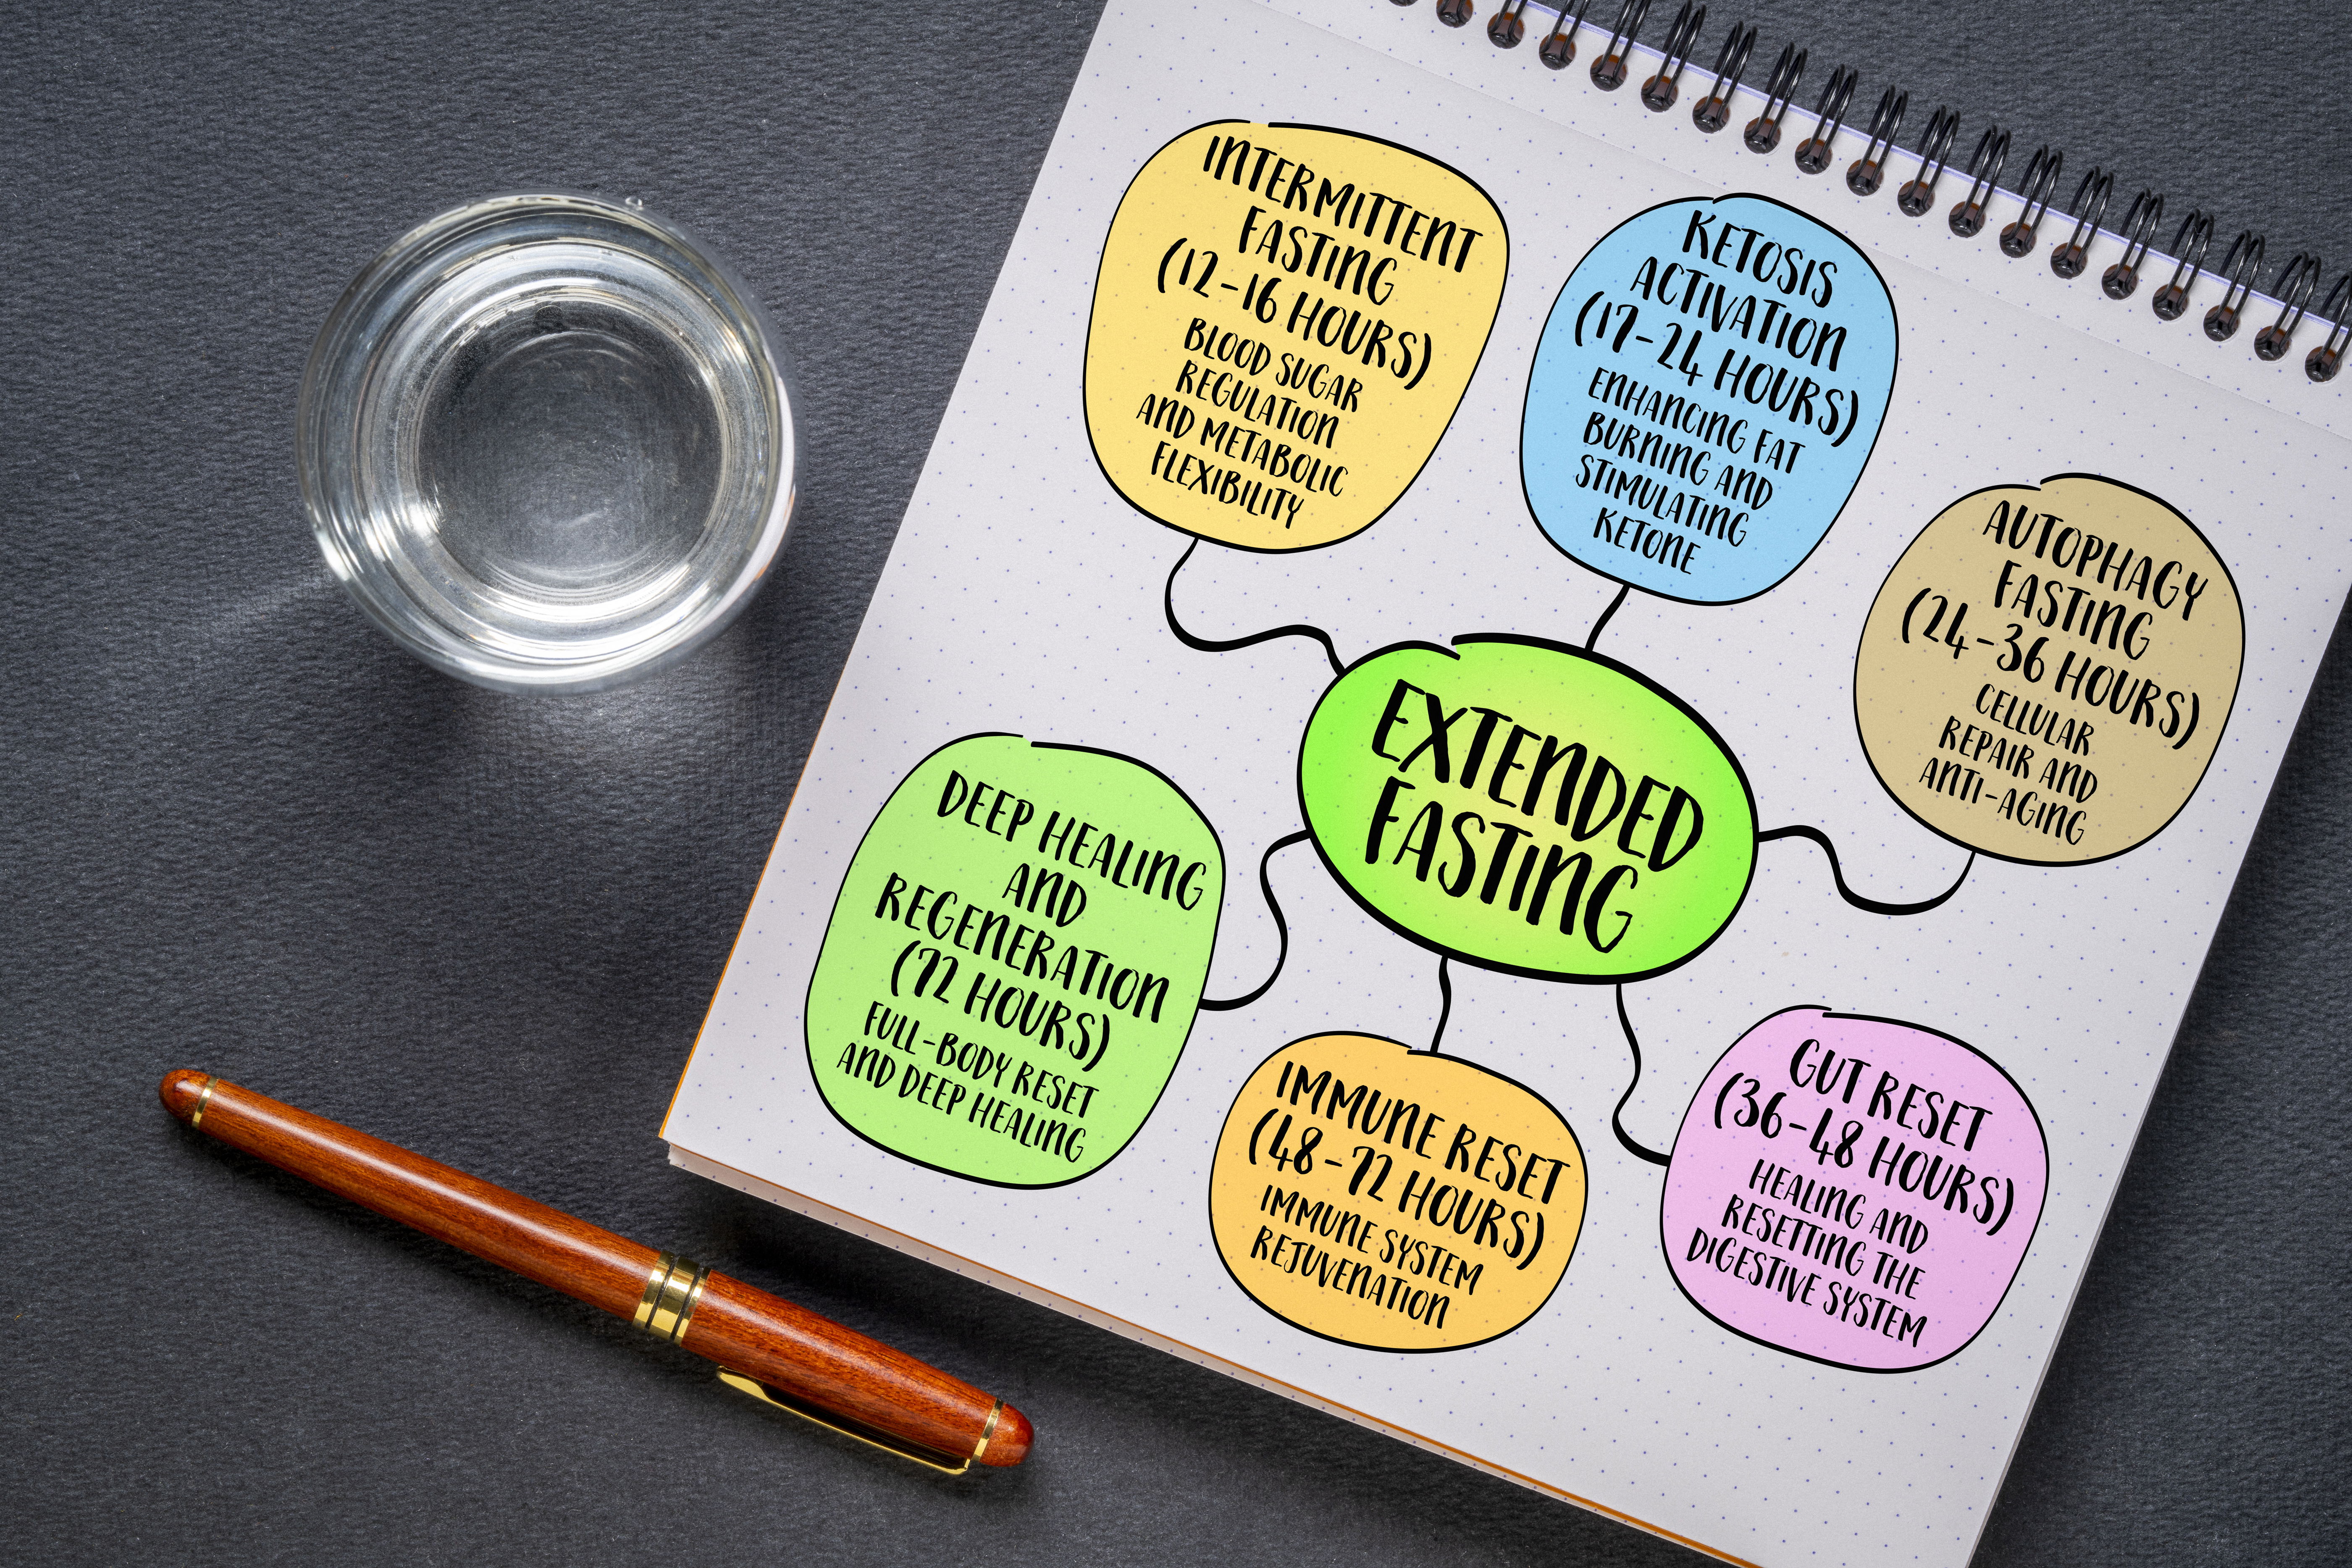 INTERMITTENT
FASTING
(12-16 HOURS)
BLOOD SUGAR
REGULATION
AND METABOLIC
FLEXIBILITY
KETOSIS
ACTIVATION
(17-24 HOURS)
ENHANCING FAT
BURNING AND
STIMULATING
KETONE
AUTOPHAGY
FASTING
(24-36 HOURS)
CELLULAR
REPAIR AND
ANTI-AGING
EXTENDED
FASTING
DEEP HEALING
AND
REGENERATION
(72 HOURS)
FULL-BODY RESET
AND DEEP HEALING
IMMUNE RESET
(48-72 HOURS)
IMMUNE SYSTEM
REJUVENATION
GUT RESET
(36-48 HOURS)
HEALING AND
RESETTING THE
DIGESTIVE SYSTEM